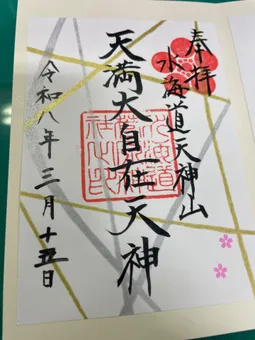 奉拝
水海道天神山
天満大自在天神
令和八年三月十五日